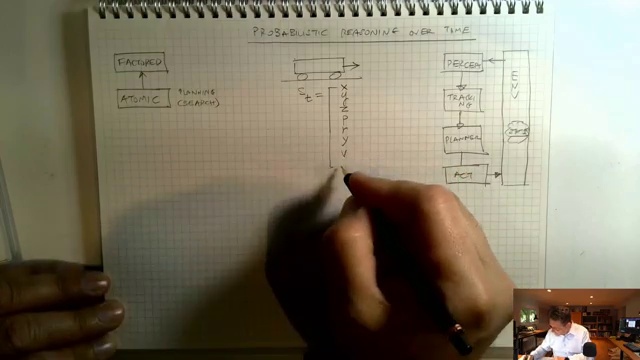 PROBABILISTIC REASONING OVER TIME
FACTORED
ATOMIC
PLANNING
(SEARCH)
St =
x
y
z
p
r
y
v
PERCEP
TRACKING
PLANNER
ACT
ENV